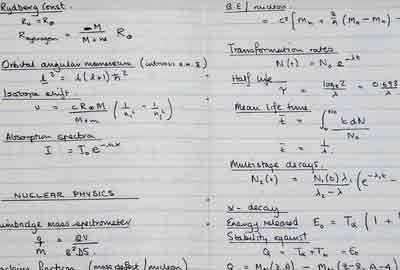 Rydberg Const.
R∞ = R∞
R_hydrogen = ∞M / (M + m) R∞
Orbital angular momentum
l² = l(l+1)ħ²
Isotope shift
υ = cR∞M / (M+m) (1/n₁² - 1/n₂²)
Absorption spectra
I = I₀e^-nx
NUCLEAR PHYSICS
Bainbridge mass spectrometer
q/M = 2V / B²DS
fraction (mass defect / nucleon)
B.E / nucleon
= c² [Mn + Z/A (MH - Mn) -
Transformation rates
N(t) = N₀e^-λt
Half life
τ = loge2 / λ = 0.693 / λ
Mean life time
t̄ = ∫₀^N₀ t dN / N₀
t̄ = 1/λ
Multistage decays.
N₂(t) = N₁(0)λ₁ / (λ₂ - λ₁) (e^-λ₁t -
α - decay
Energy released E₀ = Tα (1 +
Stability against
Q = Tα + Tb = E₀
Q = M(Z,A) - M(Z-2, A-4)